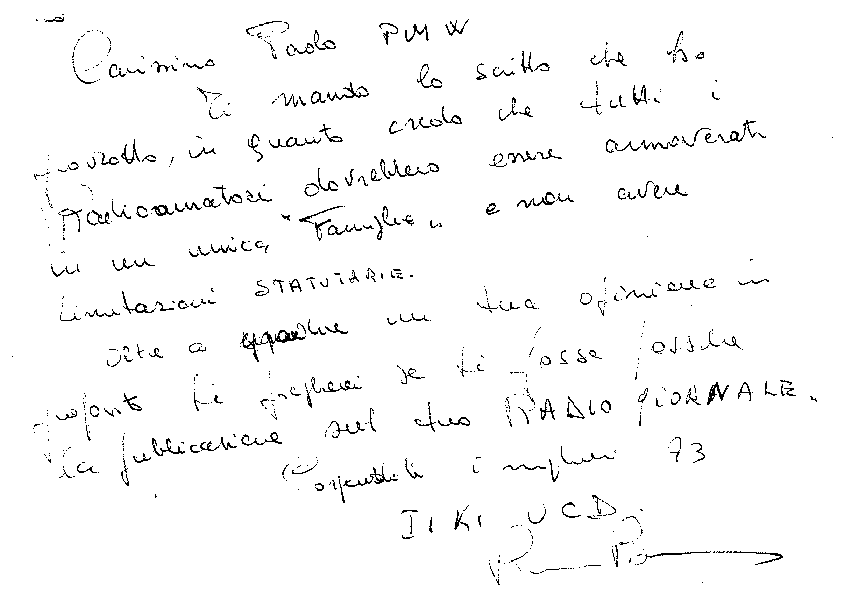 Carissimo Paolo PMW
Ti mando lo scritto che ho
prodotto, in quanto credo che tutti i
Radioamatori dovrebbero essere annoverati
in un unica "Famiglia" e non avere
limitazioni STATUTARIE.
Oltre a gradire un tua opinione in
proposito ti pregherei se ti fosse possibile
la pubblicazione sul tuo RADIO GIORNALE.
Cordiali i migliori 73